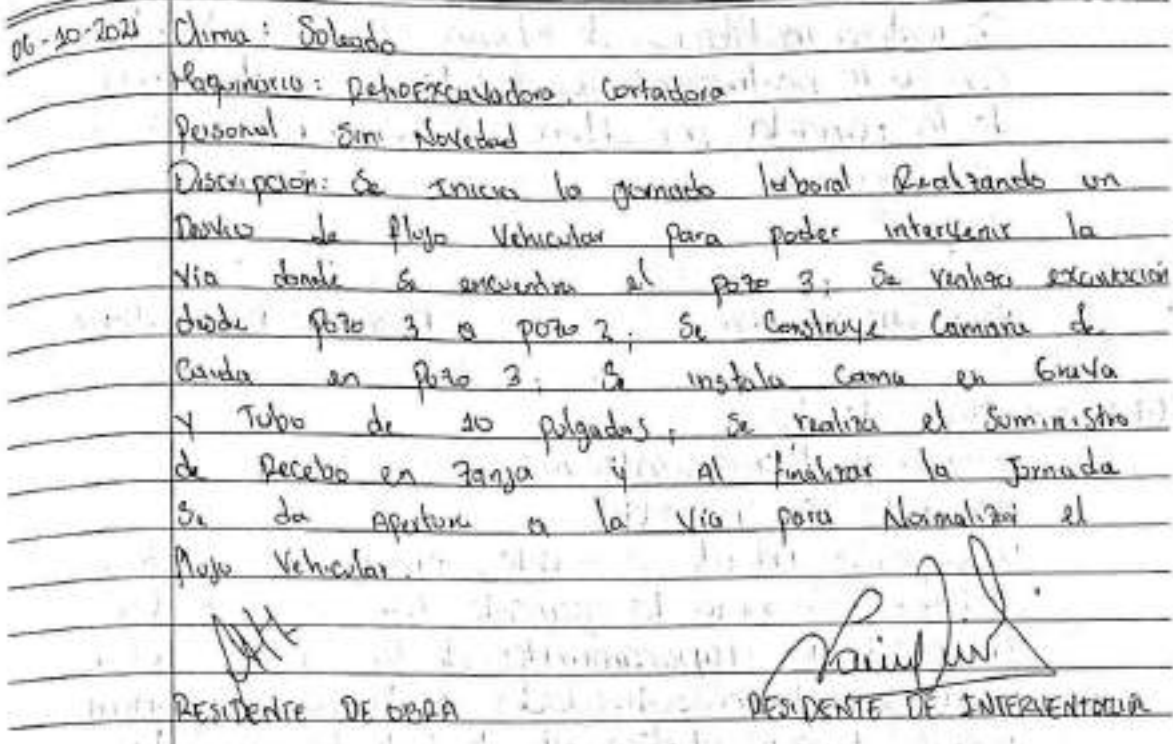 06-10-2021 Clima: Soleado
Maquinaria: RetroExcavadora, Cortadora
Personal: Sin Novedad
Descripción: Se Inicia la jornada laboral Realizando un
Desvio de flujo Vehicular para poder intervenir la
Via donde se encuentra el pozo 3; Se realiza excavación
desde pozo 3 a pozo 2; Se Construye Camara de
Caida en Pozo 3; Se instala Cama en Grava
y Tubo de 10 pulgadas; Se realiza el Suministro
de Recebo en Zanja y Al finalizar la Jornada
Se da Apertura a la Via para Normalizar el
flujo Vehicular.
RESIDENTE DE OBRA RESIDENTE DE INTERVENTORIA